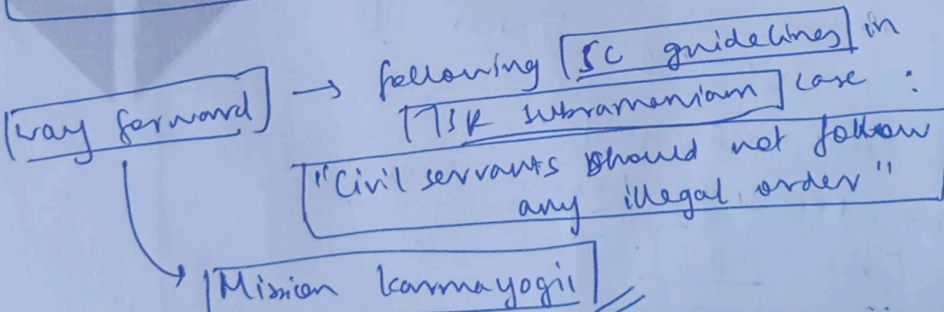 way forward → following SC guidelines in
TSR Subramaniam case :
"Civil servants should not follow
any illegal order"
Mission karmayogii